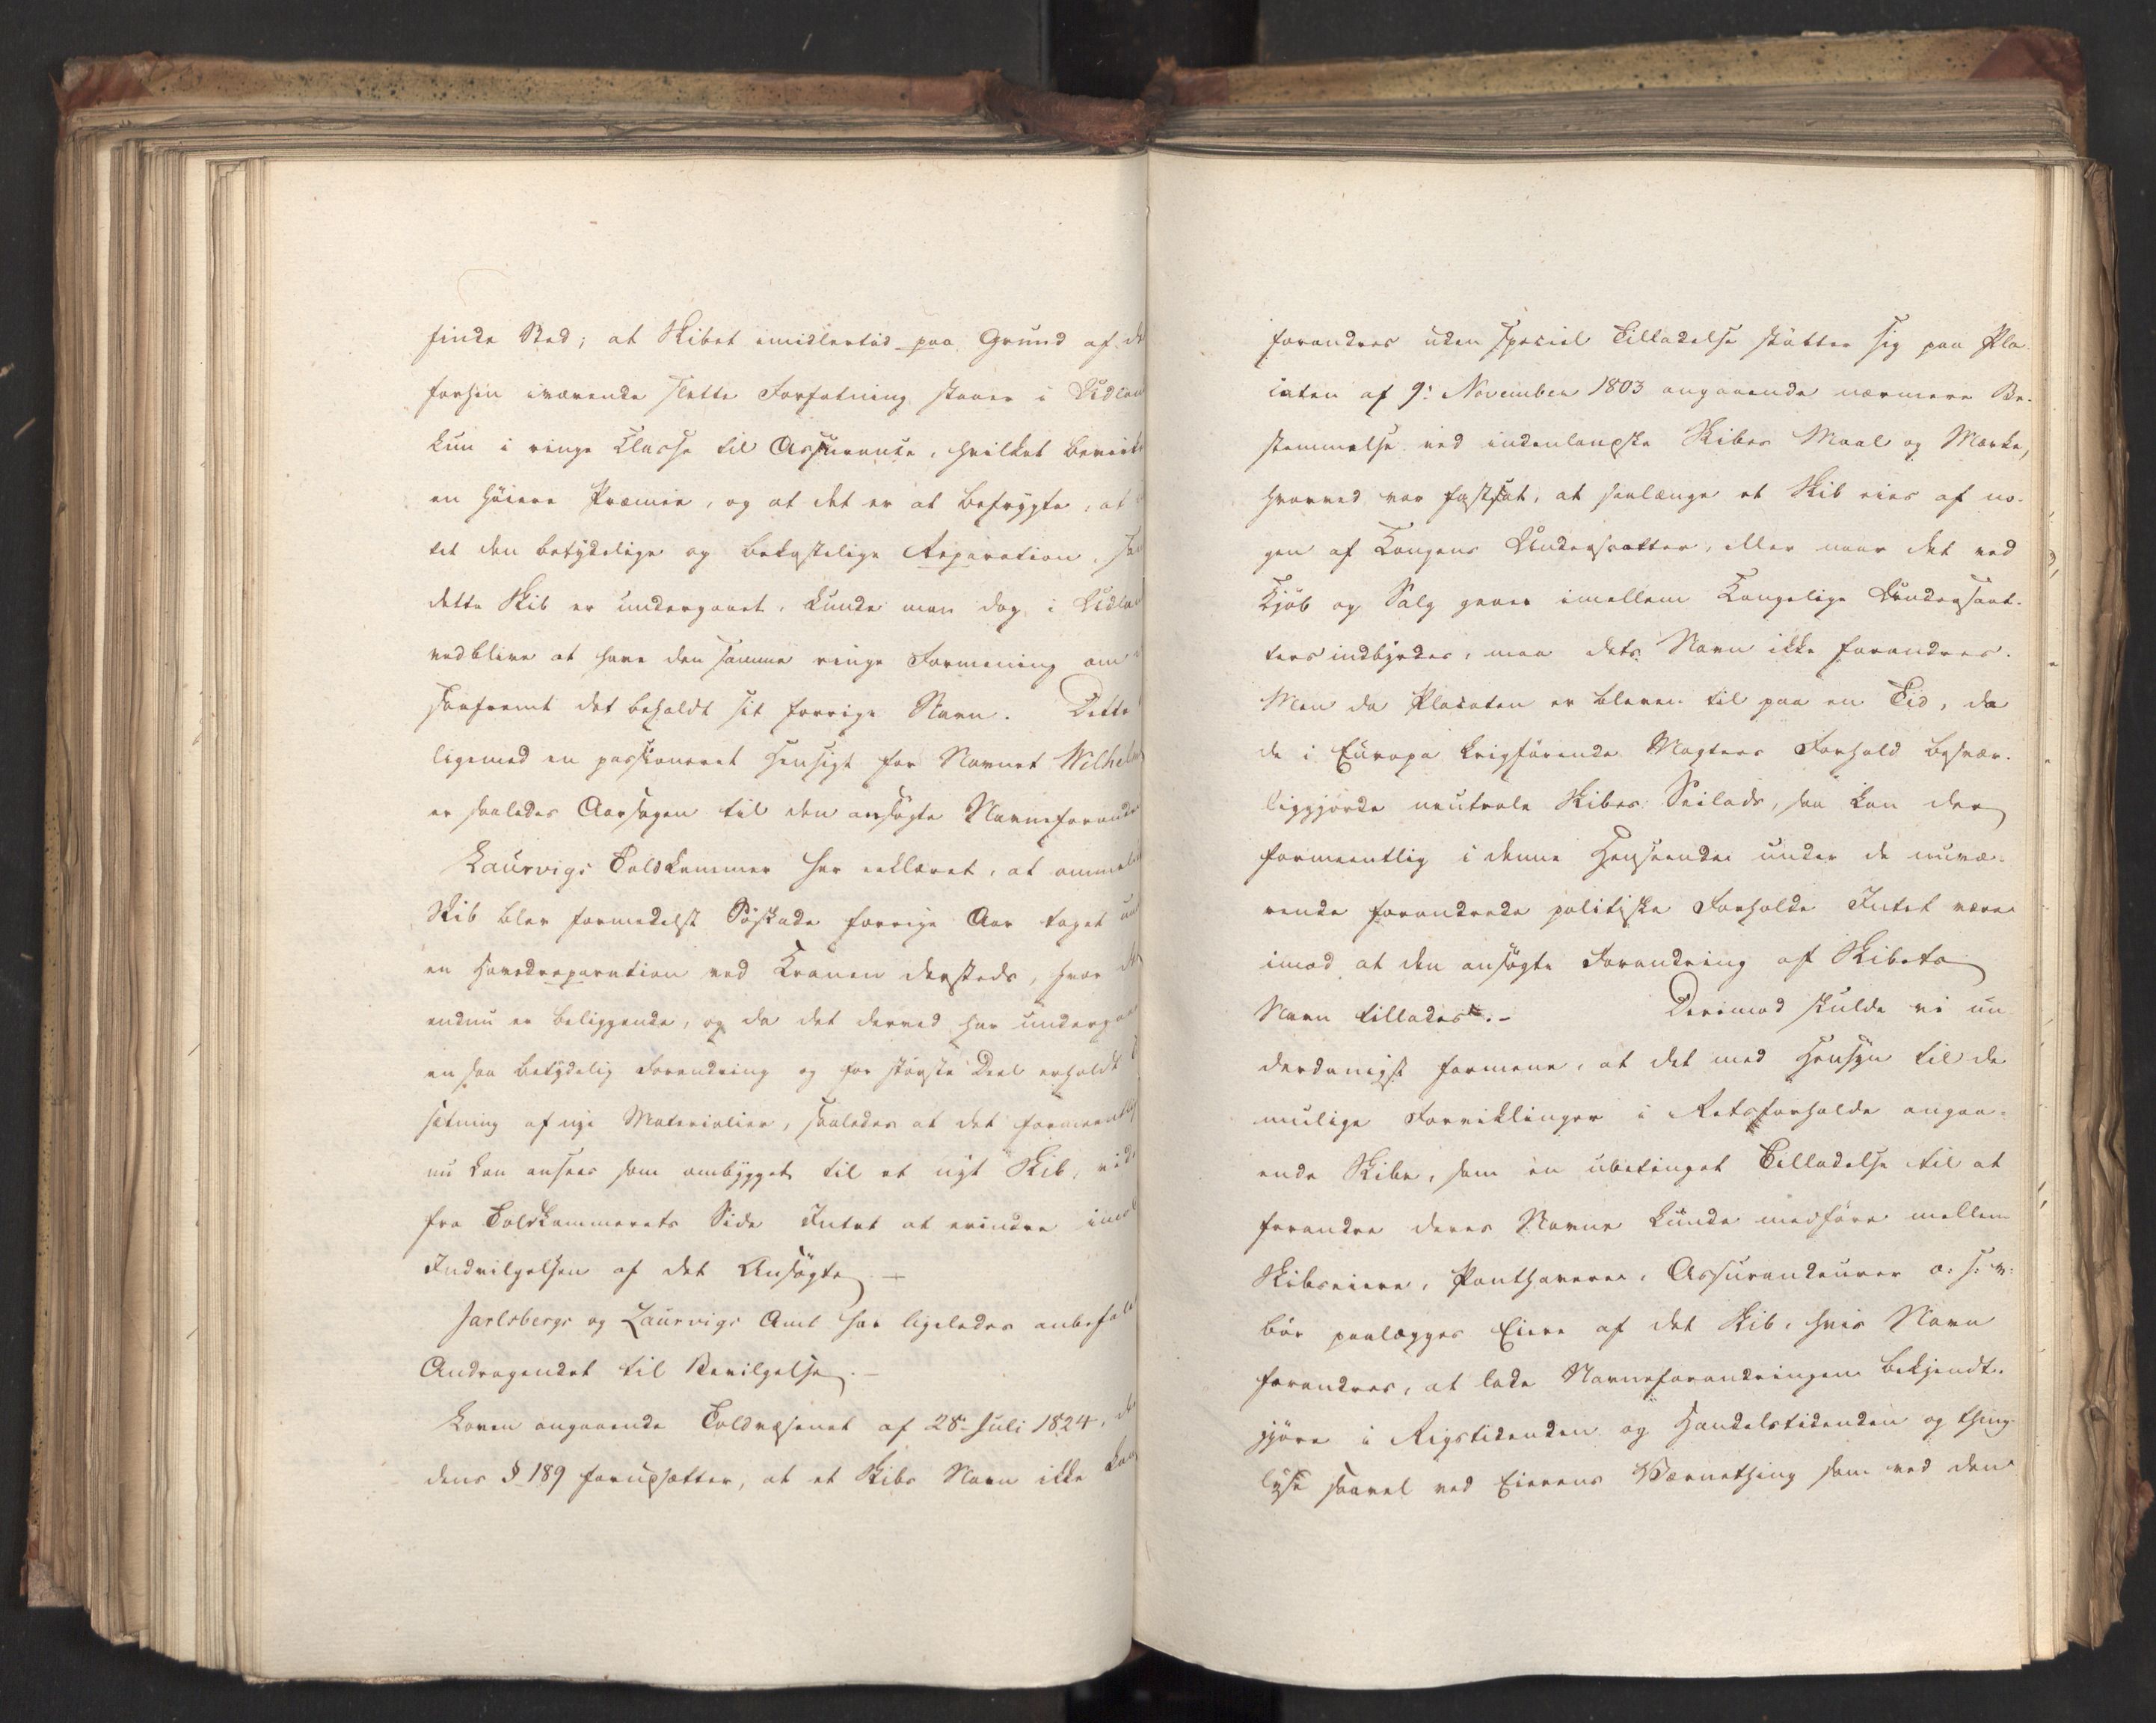 finde Sted; at Skibet imidlertid paa Grund af de
forhen iværende slette Forfatning staaer i Udlan
kun i ringe Classe til Assurance, hvilket bevirk
en høiere Præmie, og at det er at befrygte, at
tet den betydelige og bekostelige Reparation, som
dette Skib er undergaaet, kunde man dog i Udlan
vedblive at have den samme ringe Formening om
saafremt det beholdt sit forrige Navn. Dette
ligemed en passioneret Hensigt for Navnet Wilhelm
er saaledes Aarsagen til den ansøgte Navneforandr
Laurvigs Toldkammer har erklæret, at ommel
Skib blev formedelst Søskade forrige Aar taget un
en Hovedreparation ved Kranen dersteds, hvor det
endnu er beliggende, og da det derved har underga
en saa betydelig Forandring og for største Deel erholdt
sætning af nye Materialier, saaledes at det formeentlig
nu kan ansees som ombygget til et nyt Skib, vid
fra Toldkammerets Side Intet at erindre imod
Indvilgelsen af det Ansøgte. —
Jarlsbergs og Laurvigs Amt har ligeledes anbefalet
Andragendet til Bevilgelse. —
Loven angaaende Toldvæsenet af 28de Juli 1824,
dens § 189 forudsætter, at et Skibs Navn ikke kan
forandres uden speciel Tilladelse støtter sig paa Pla-
caten af 9: November 1803 angaaende nærmere Be-
stemmelse ved indenlandske Skibes Maal og Mærke,
hvorved var fastsat, at saalænge et Skib eies af no-
gen af Kongens Undersaatter, eller naar det ved
Kjøb og Salg gaaer imellem Kongelige Undersaat-
ters indbyrdes, maa dets Navn ikke forandres.
Men da Placaten er bleven til paa en Tid, da
de i Europa krigførende Magters Forhold besvær-
liggjorde neutrale Skibes Seilads, saa kan der
formeentlig i denne Henseende under de nuvæ-
rende forandrede politiske Forholde Intet være
imod at den ansøgte Forandring af Skibets
Navn tillades. – Derimod skulde vi un
derdanigst formene, at det med Hensyn til de
mulige Forviklinger i Retsforholde angaa-
ende Skibe, som en ubetinget Tilladelse til at
forandre deres Navne kunde medføre mellem
Skibseiere, Panthavere, Assurandeurer o: s: v:
bør paalægges Eiere af det Skib, hvis Navn
forandres, at lade Navneforandringen bekjendt-
gjøre i Rigstidenden og Handelstidenden og thing-
lyse saavel ved Eierens Værnething som ved den